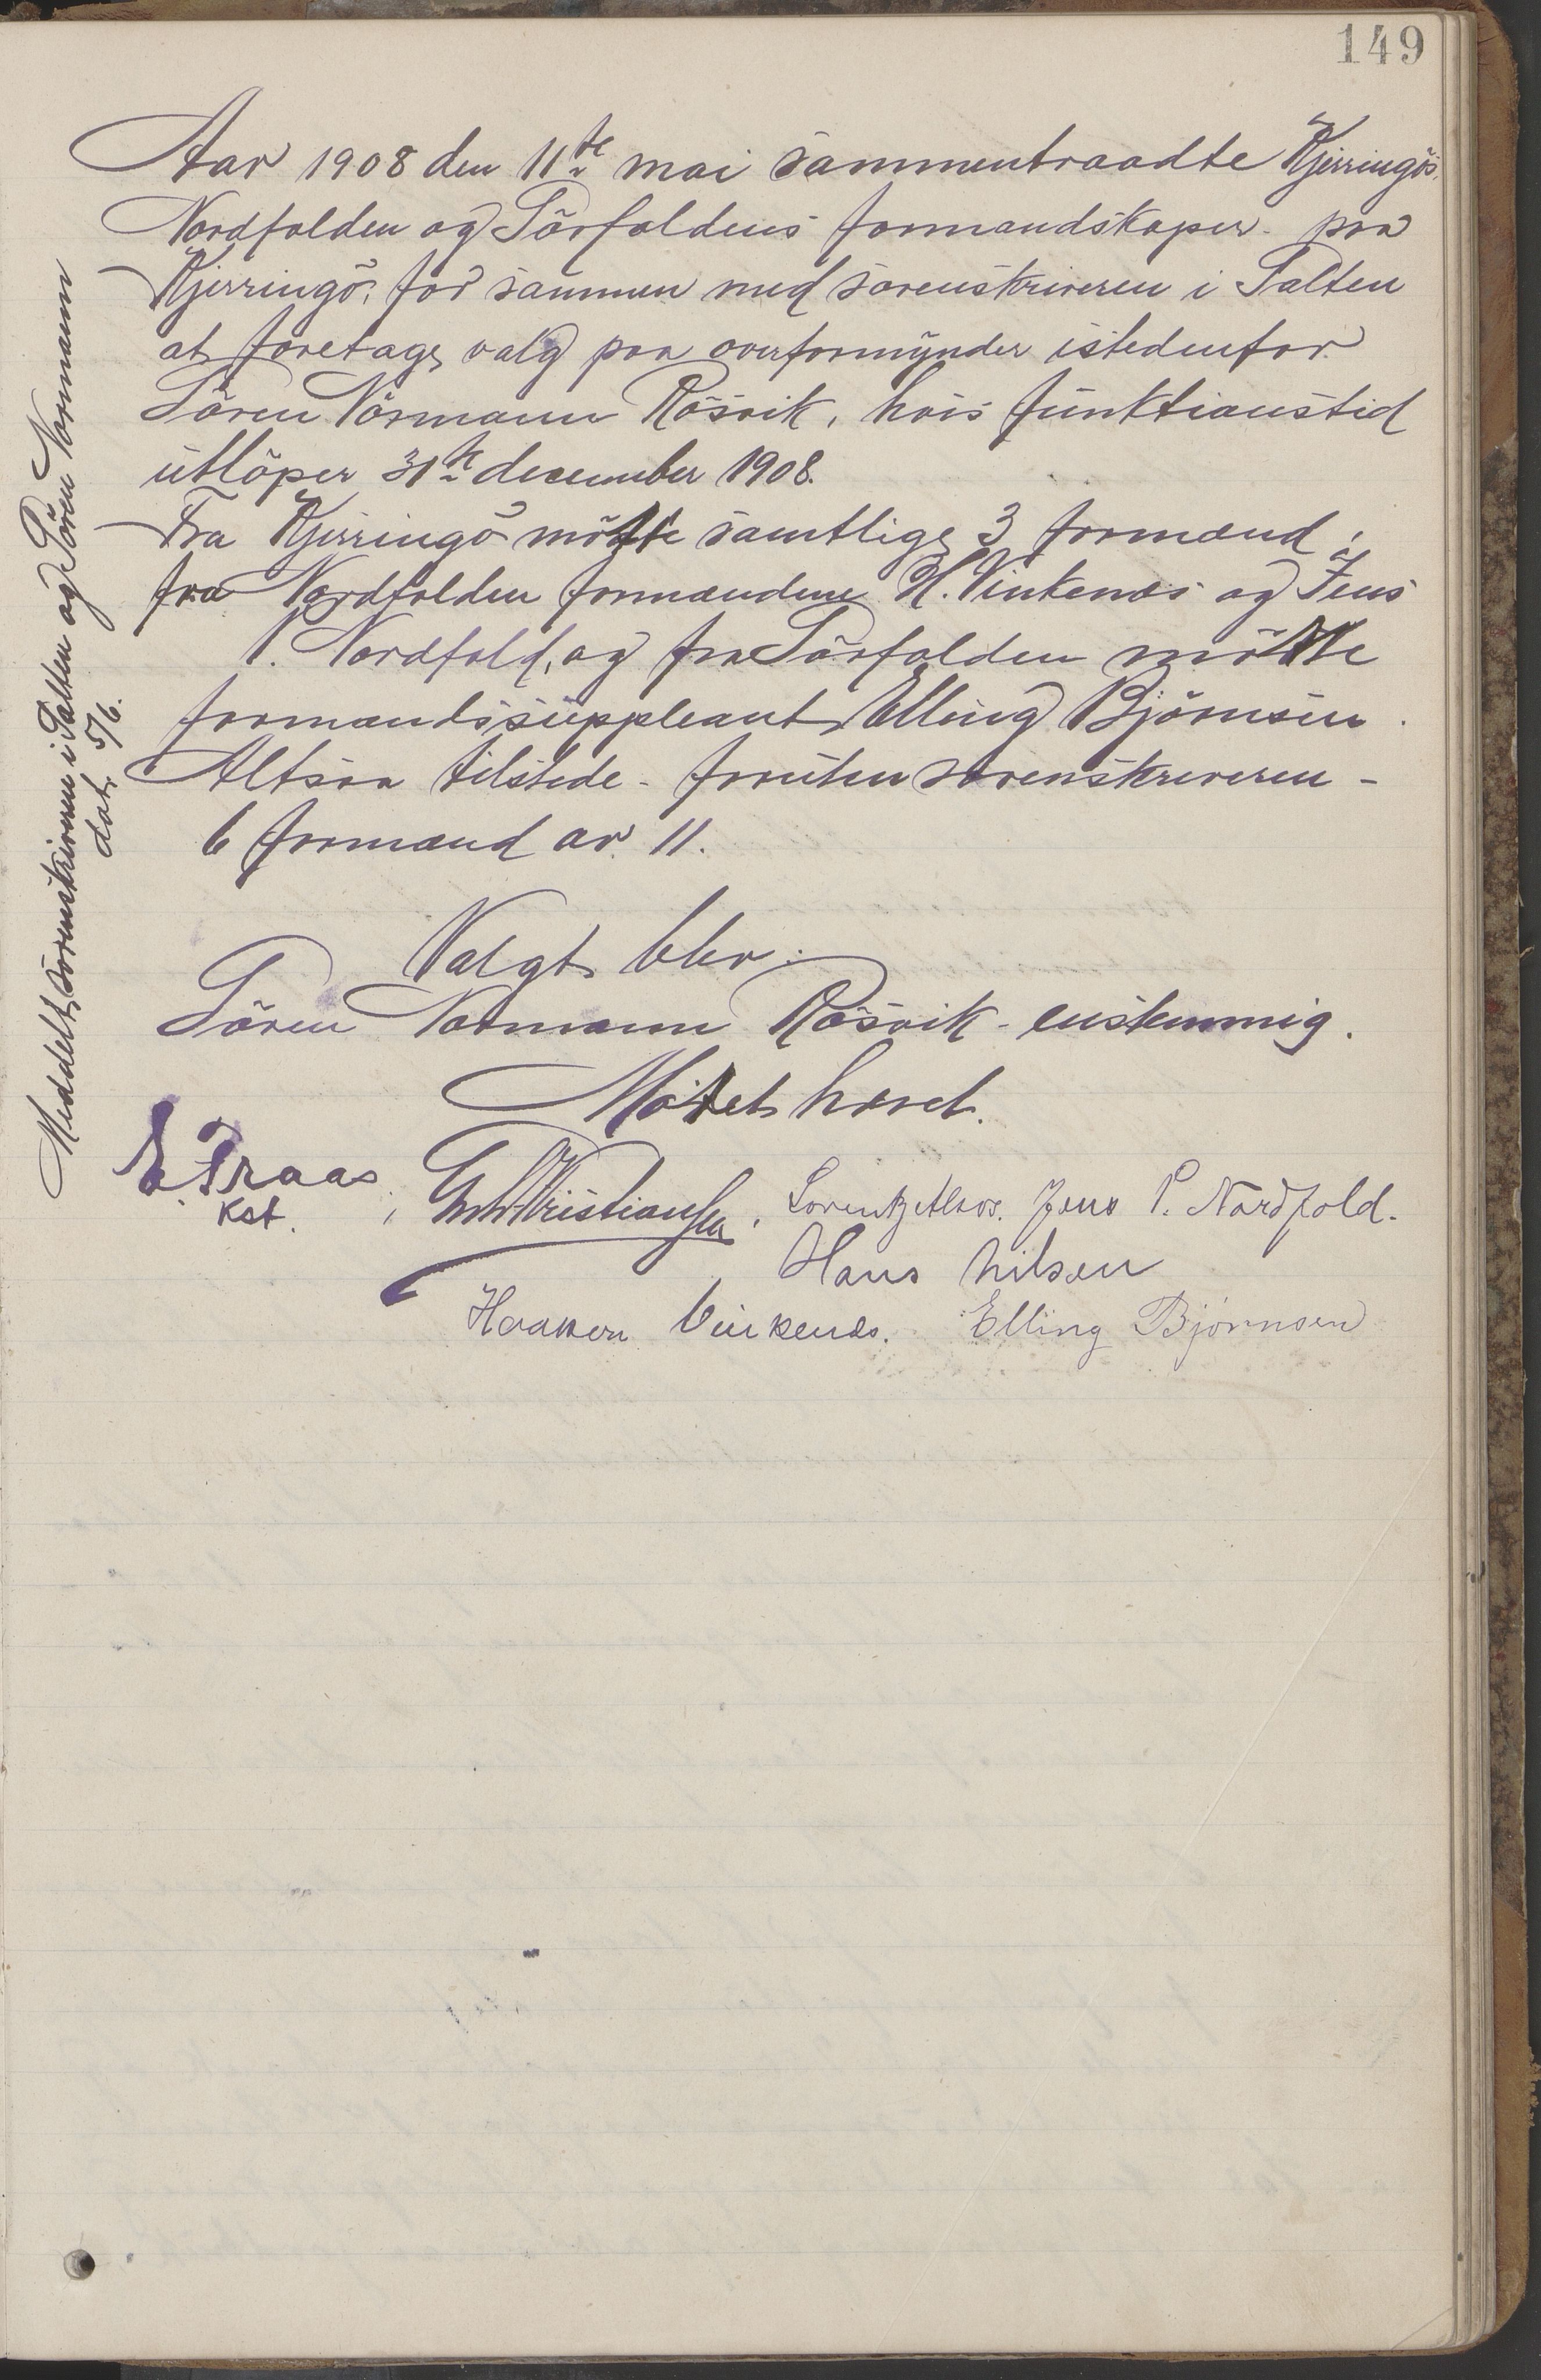 149
Aar 1908 den 11te mai sammentraadte Kjerringös,
Nordfolden og Sörfoldens formandskaper paa
Kjerringö, for sammen med sorenskriveren i Salten
at foretage valg paa overformynder istedenfor
Sören Normann Rösvik, hvis funktionstid
utlöper 31te december 1908.
Fra Kjerringö mötte samtlige 3 formænd;
fra Nordfolden formændene H. Vinkenæs og Jens
P. Nordfold, og fra Sörfolden mötte
formandssuppleant Elling Björnsen.
Altsaa tilstede - foruten sorenskriveren -
6 formænd av 11.
Valgt blev:
Sören Normann Rösvik - enstemmig.
Mötet hævet.
E. Traas, Kristiansen, Lorentz Jens P. Nordfold.
Kst.
Hans Nilsen
Haakon Vinkenes. Elling Björnsen
Meddelt sorenskriveren i Salten og Sören Normann
dat. 5/6.